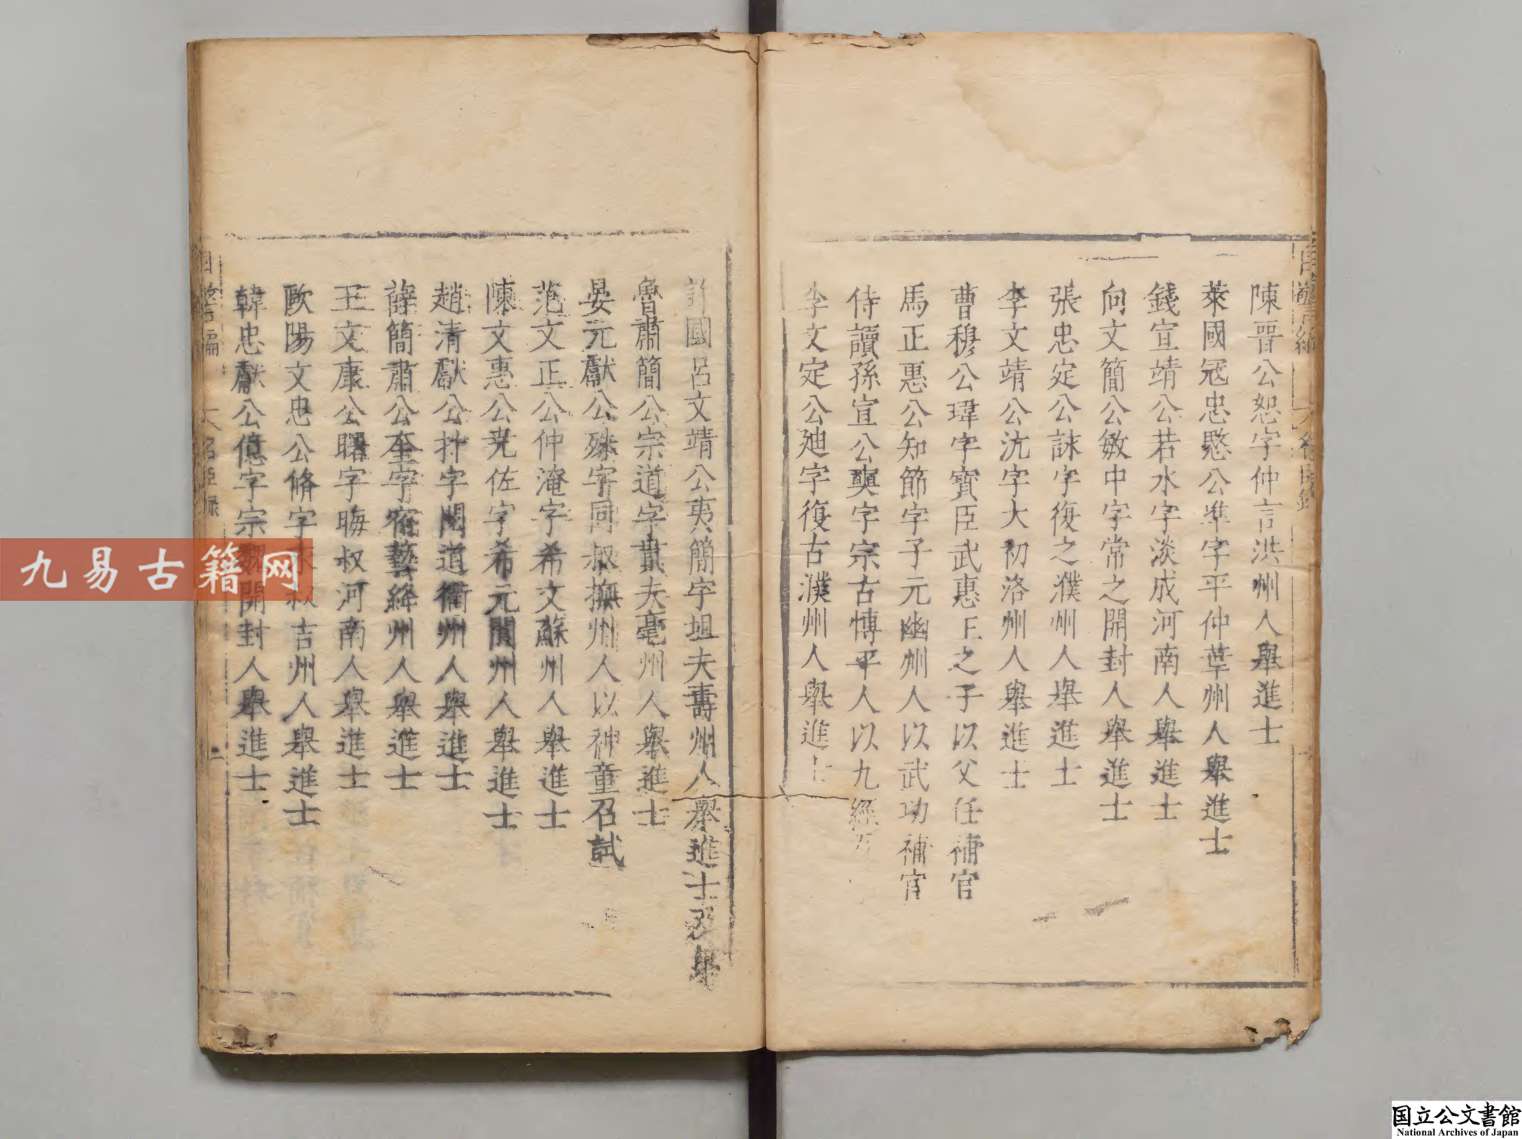 陳晋公恕字仲言洪州人舉進士
萊國冦忠愍公準字平仲華州人舉進士
錢宣靖公若水字淡成河南人舉進士
向文簡公敏中字常之開封人舉進士
張忠定公詠字復之濮州人舉進士
李文靖公沆字大初洛州人舉進士
曹穆公瑋字寳臣武惠王之子以父任補官
馬正惠公知節字子元幽州人以武功補官
侍讀孫宣公奭字宗古愽平人以九經
李文定公廸字復古濮州人舉進士
許國呂文靖公夷簡字坦夫壽州人舉進士
魯肅簡公宗道字貫夫亳州人舉進士
晏元獻公殊字同叔撫州人以神童召試
范文正公仲淹字希文蘇州人舉進士
陳文惠公尭佐字希元閬州人舉進士
趙清獻公抃字閱道衢州人舉進士
薛簡肅公奎字宿藝絳州人舉進士
王文康公曙字晦叔河南人舉進士
歐陽文忠公脩字永叔吉州人舉進士
韓忠獻公億字宗魏開封人舉進士
九易古籍网
国立公文書館
National Archives of Japan